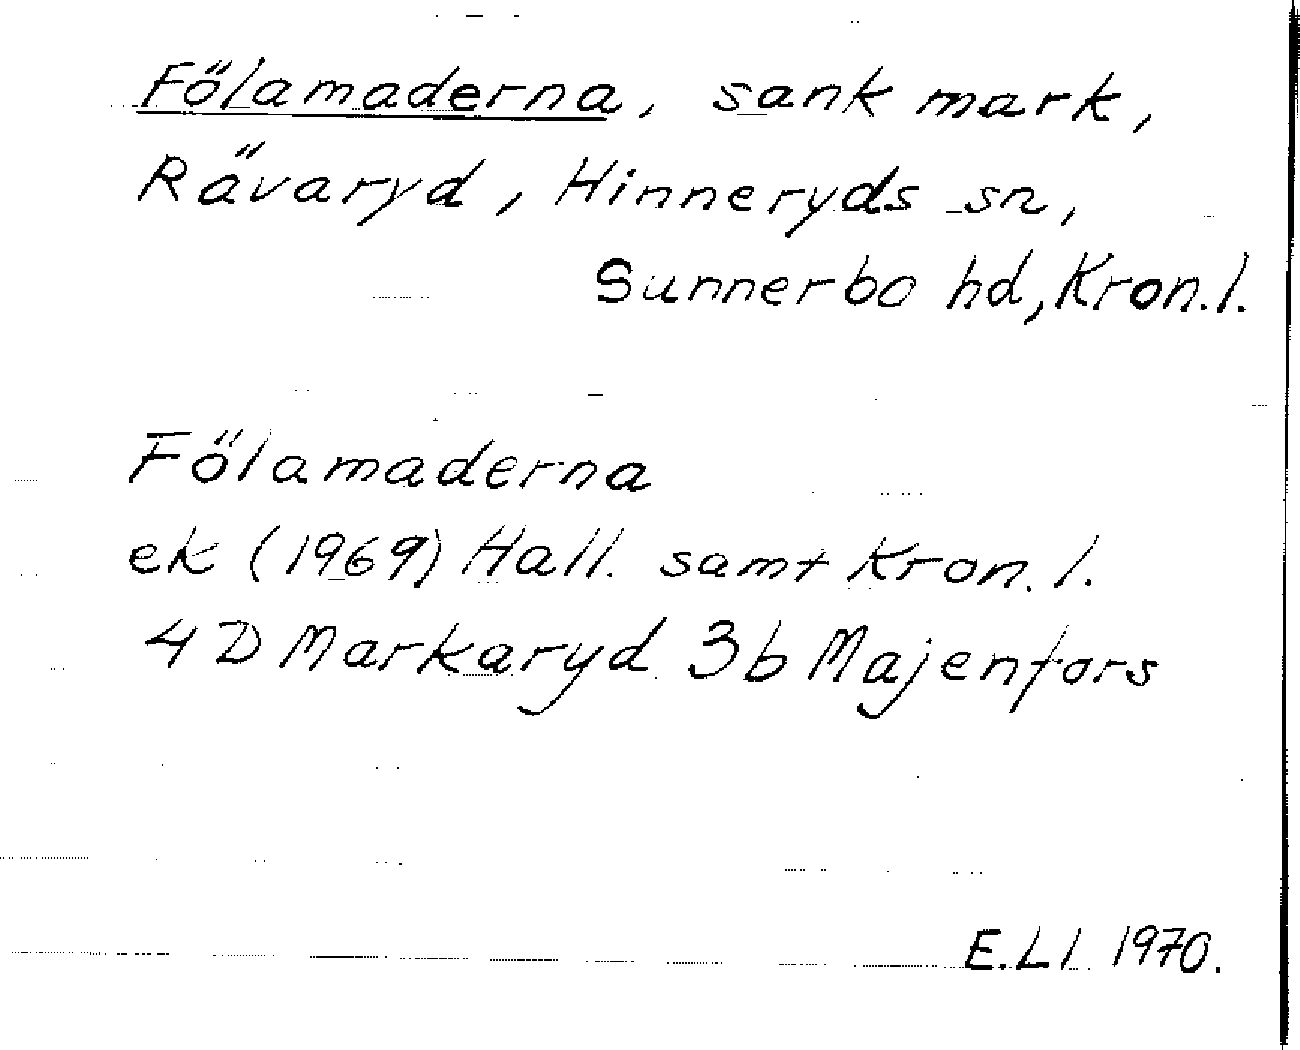 Fölamaderna, sank mark,
Rävaryd, Hinneryds sn,
Sunnerbo hd, Kron. l.
Fölamaderna
ek (1969) Hall. samt Kron. l.
4 D Markaryd 3b Majenfors
E. Ll. 1970.